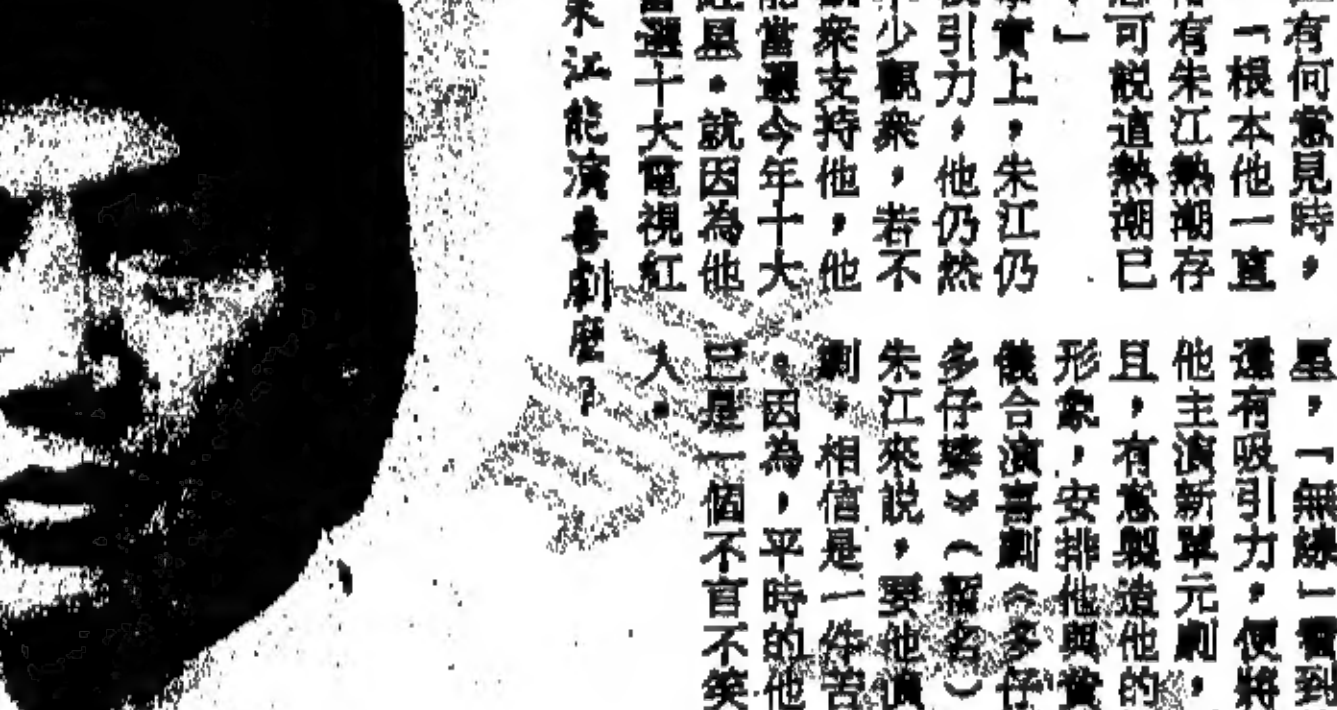 有何意見時，
「根本他一直
有朱江熱潮存
可說道熱潮已
」
實上，朱江仍
引力，他仍然
少觀衆，若不
衆支持他，他
當選今年十大
星。就因為他
當選十大電視紅
朱江能演喜劇麽？
星，「無綫」看到
還有吸引力，便將
他主演新單元劇，
且，有意製造他的
形象，安排他與黃
儀合演喜劇《多仔
多仔婆》（暫名）
朱江來說，要他演
劇，相信是一件苦
。因為，平時的他
已是一個不苟不笑
人。